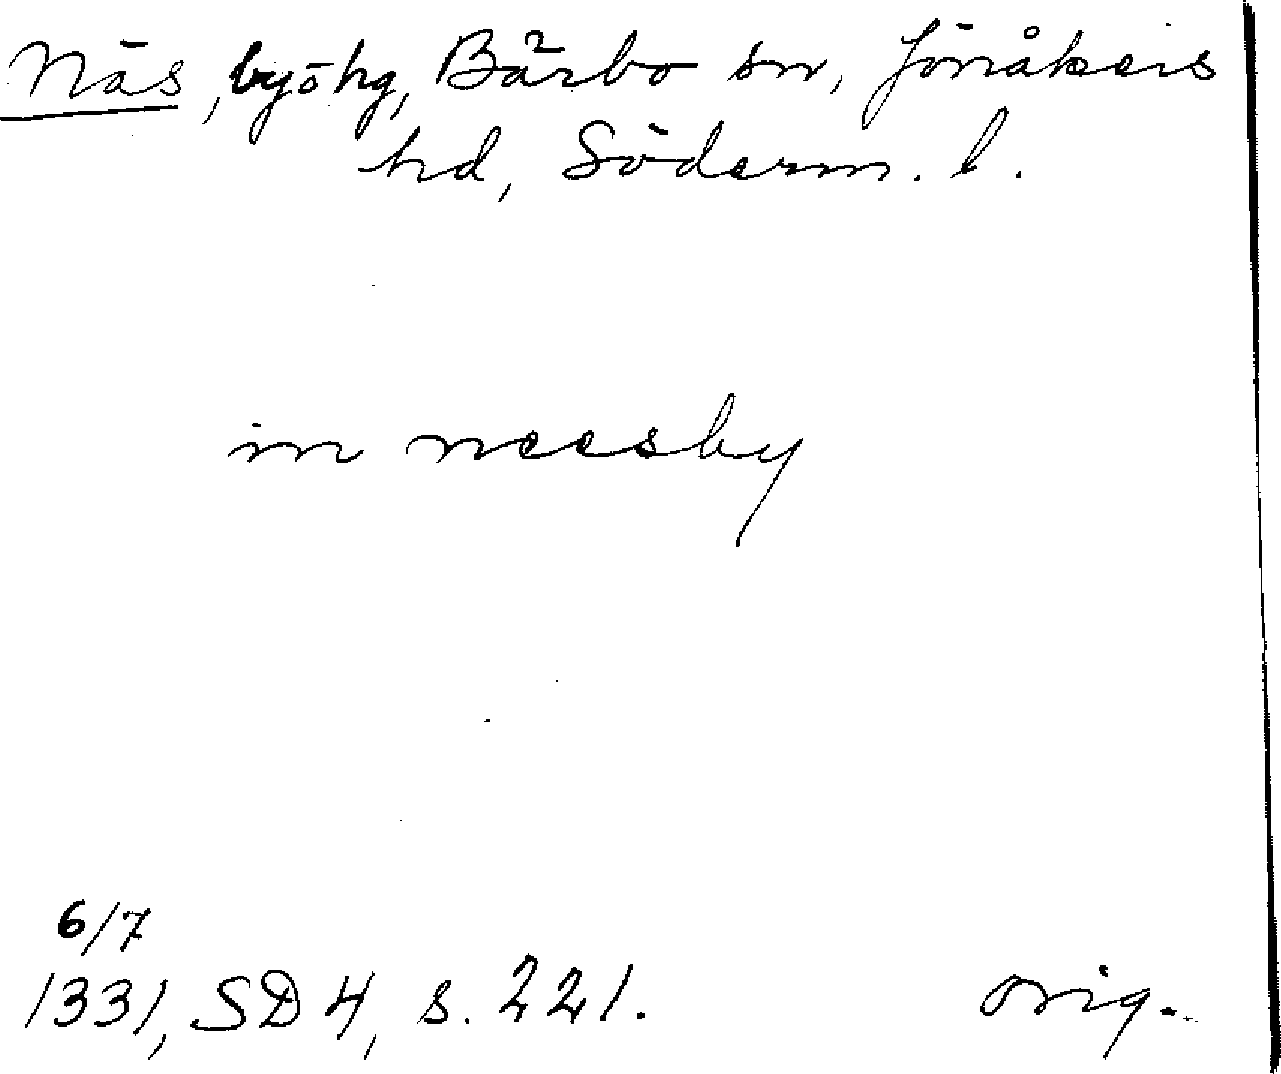 Näs, by o hg, Bärbo sn, Jönåkers
hd, Söderm. l.
in neesby
6/7
1331, SD 4, s. 221.
orig.